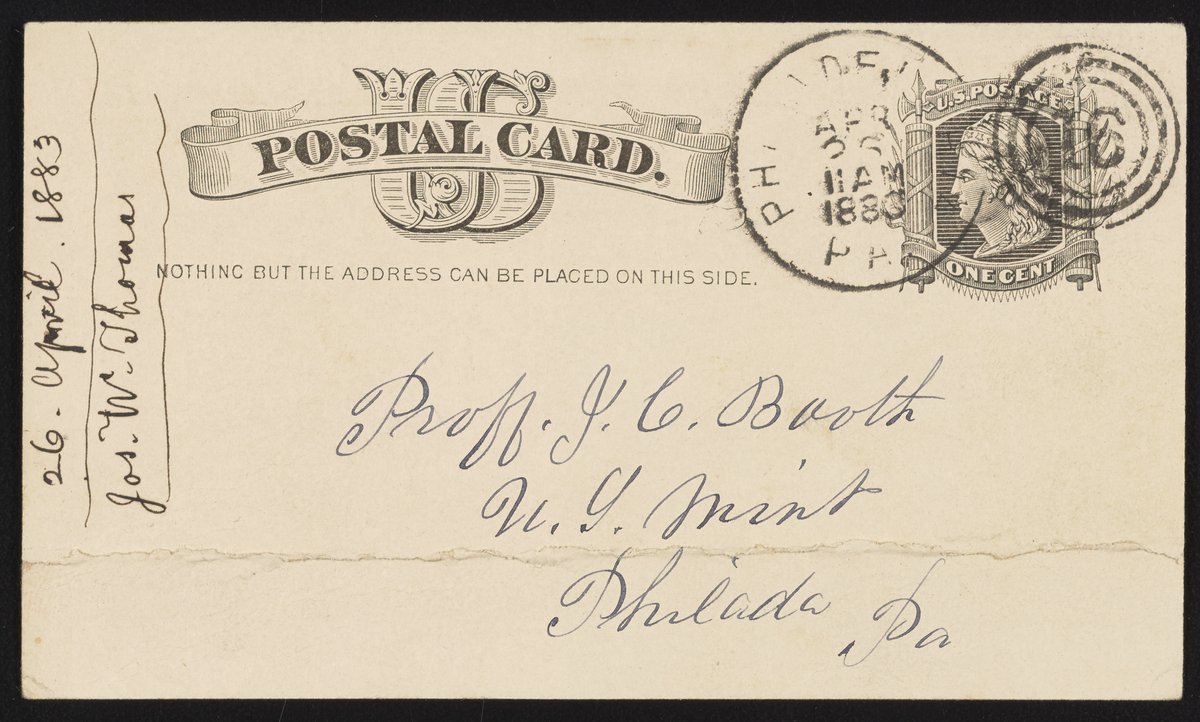 26. April. 1883
Jos. W. Thomas
US
POSTAL CARD.
NOTHING BUT THE ADDRESS CAN BE PLACED ON THIS SIDE.
APR
11 AM
1880
PA
U.S. POSTAGE
ONE CENT
Proff. J. C. Booth
U. S. Mint
Philada Pa